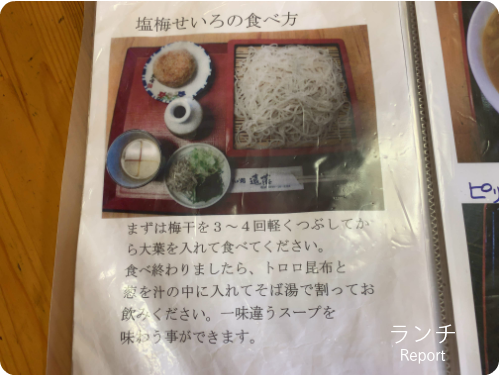 塩梅せいろの食べ方
まずは梅干を３～４回軽くつぶしてか
ら大葉を入れて食べてください。
食べ終わりましたら、トロロ昆布と
葱を汁の中に入れてそば湯で割ってお
飲みください。一味違うスープを
味わう事ができます。
ピッ
ランチ
Report